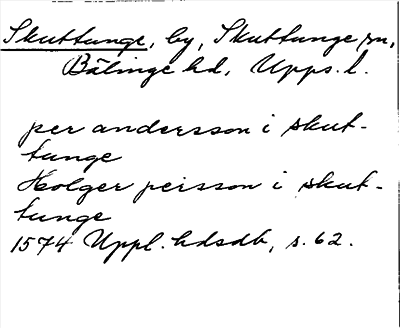 Skuttunge, by, Skuttunge sn,
Bälinge hd, Upps. l.
per andersson i skut-
tunge
Holger peirsson i skut-
tunge
1574 Uppl. hdsdb, s. 62.